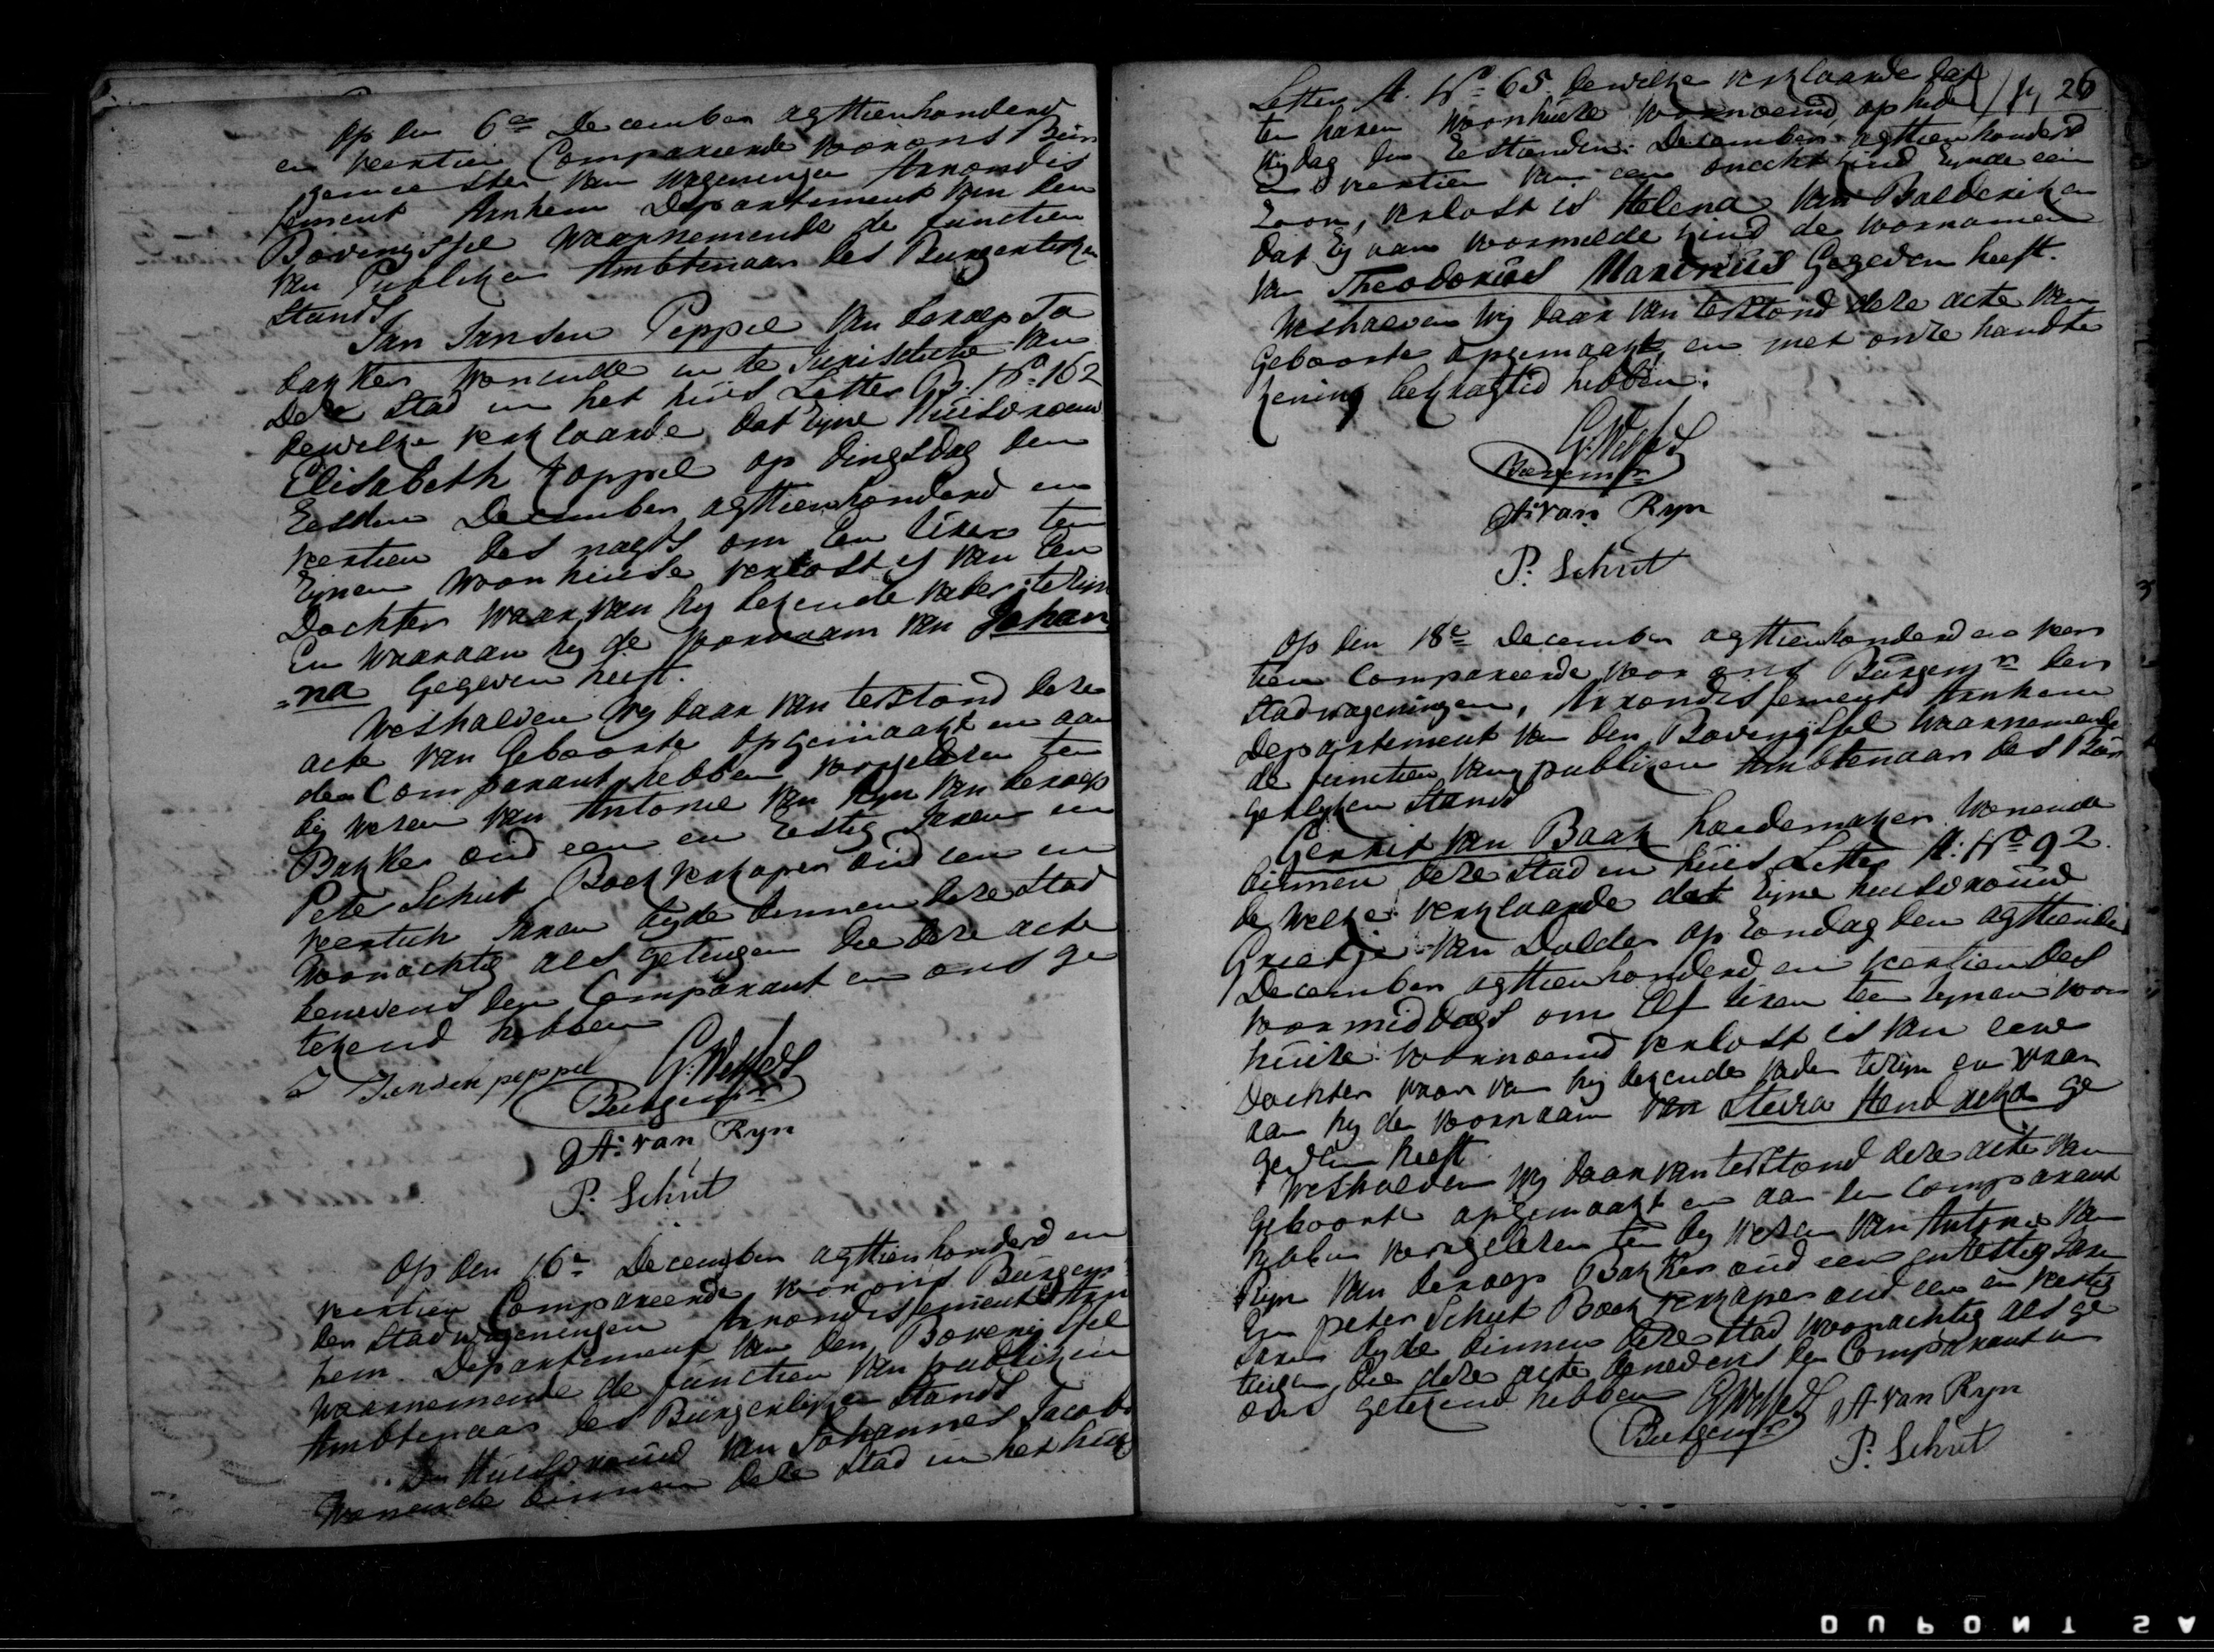 Op den 6en December agttienhonderd
en veertien Compareerde voor ons Bur
gemeester van Wageningen Arrondis
sement Arnhem Departement van den
Bovenyssel waarnemende de functien
van Publiken Ambtenaar des Burgerlyken
Stands
Jan Jansen Peppel van beroep Ta
bakker wonende in de Jurisdictie van
deze Stad in het huis Letter B. No. 162
dewelke verklaarde dat zyne Huisvrouw
Elisabeth Koppel op dingsdag den
zesden December agttienhonderd en
veertien des nagts om een uren ten
zynen woonhuise verlost is van een
Dochter waar van hy bekende vader te zyn
en waaraan hy de voornaam van Johan
=na gegeven heeft.
Weshalven wy daar van terstond deze
acte van Geboorte opgemaakt en aan
den Comparant hebben voorgelezen ten
by wesen van Antonie van Ryn van beroep
Bakker oud een en zestig Jaren en
Peter Schut Boekverkoper oud een en
veertich Jaren beyde binnen deze Stad
woonachtig als getuigen die deze acte
benevens den Comparant en ons ge
tekend hebben
J Jansen peppel G. Wessels
Burgemr
A: van Ryn
P. Schut
Op den 16e December agttienhonderd en
veertien Compareerde voor ons Burgemr
der Stad wageningen Arrondissement Arn
hem. Departement van den Bovenyssel
waarnemende de functien van publiken
Ambtenaar des Burgerlyken Stands
De Huisvrouw van Johannes Jacobs
wonende binnen deze Stad in het huis
Letter A. No. 65. dewelke verklaarde dat 26
ten haren woonhuize voornoemd op heden
vrydag den zestienden December agttienhonderd
en veertien van een onecht kind zynde een
zoon, verlost is Helena van Balderiken
dat zy aan voormelde kind de voornamen
van Theodorus Marinus Gegeven heeft.
Weshalven wy daar van terstond deze acte van
Geboorte opgemaakt en met onze handte
kening bekragtid hebben.
G. Wessels
Burgemr
A: van Ryn
P. Schut
Op den 18e December agttienhonderd en veer
tien Compareerde voor ons Burgemr der
Stad wageningen, Arrondissement Arnhem
Departement van den Bovenyssel waarnemende
de functien van publiken Ambtenaar des Bur
gerlyken Stands
Gerrit van Baak hoedemaker wonende
binnen deze Stad in huis Letter A: No 92.
de welke verklaarde dat zyne huisvrouw
Grietje van Dolder op Zondag den agttiende
December agttienhonderd en veertien des
voormiddags om Elf uren ten zynen woon
huize voornoemd verlost is van eene
Dochter waar van hy bekende vader te zyn en waar
aan hy den voornaam van Hendrika ge
geven heeft.
Weshalven wy daar van terstond deze acte van
Geboorte opgemaakt en aan den Comparant
voorgelezen ten by wesen van Antonie van
Ryn van beroep Bakker oud een en zestig Jaren
En peter Schut Boekverkoper oud een en veertig
Jaren beyde binnen deze Stad woonachtig als ge
tuigen, die deze acte benevens den Comparant en
ons getekend hebben G. Wessels A. van Ryn
Burgemr P. Schut
DUPONT SA